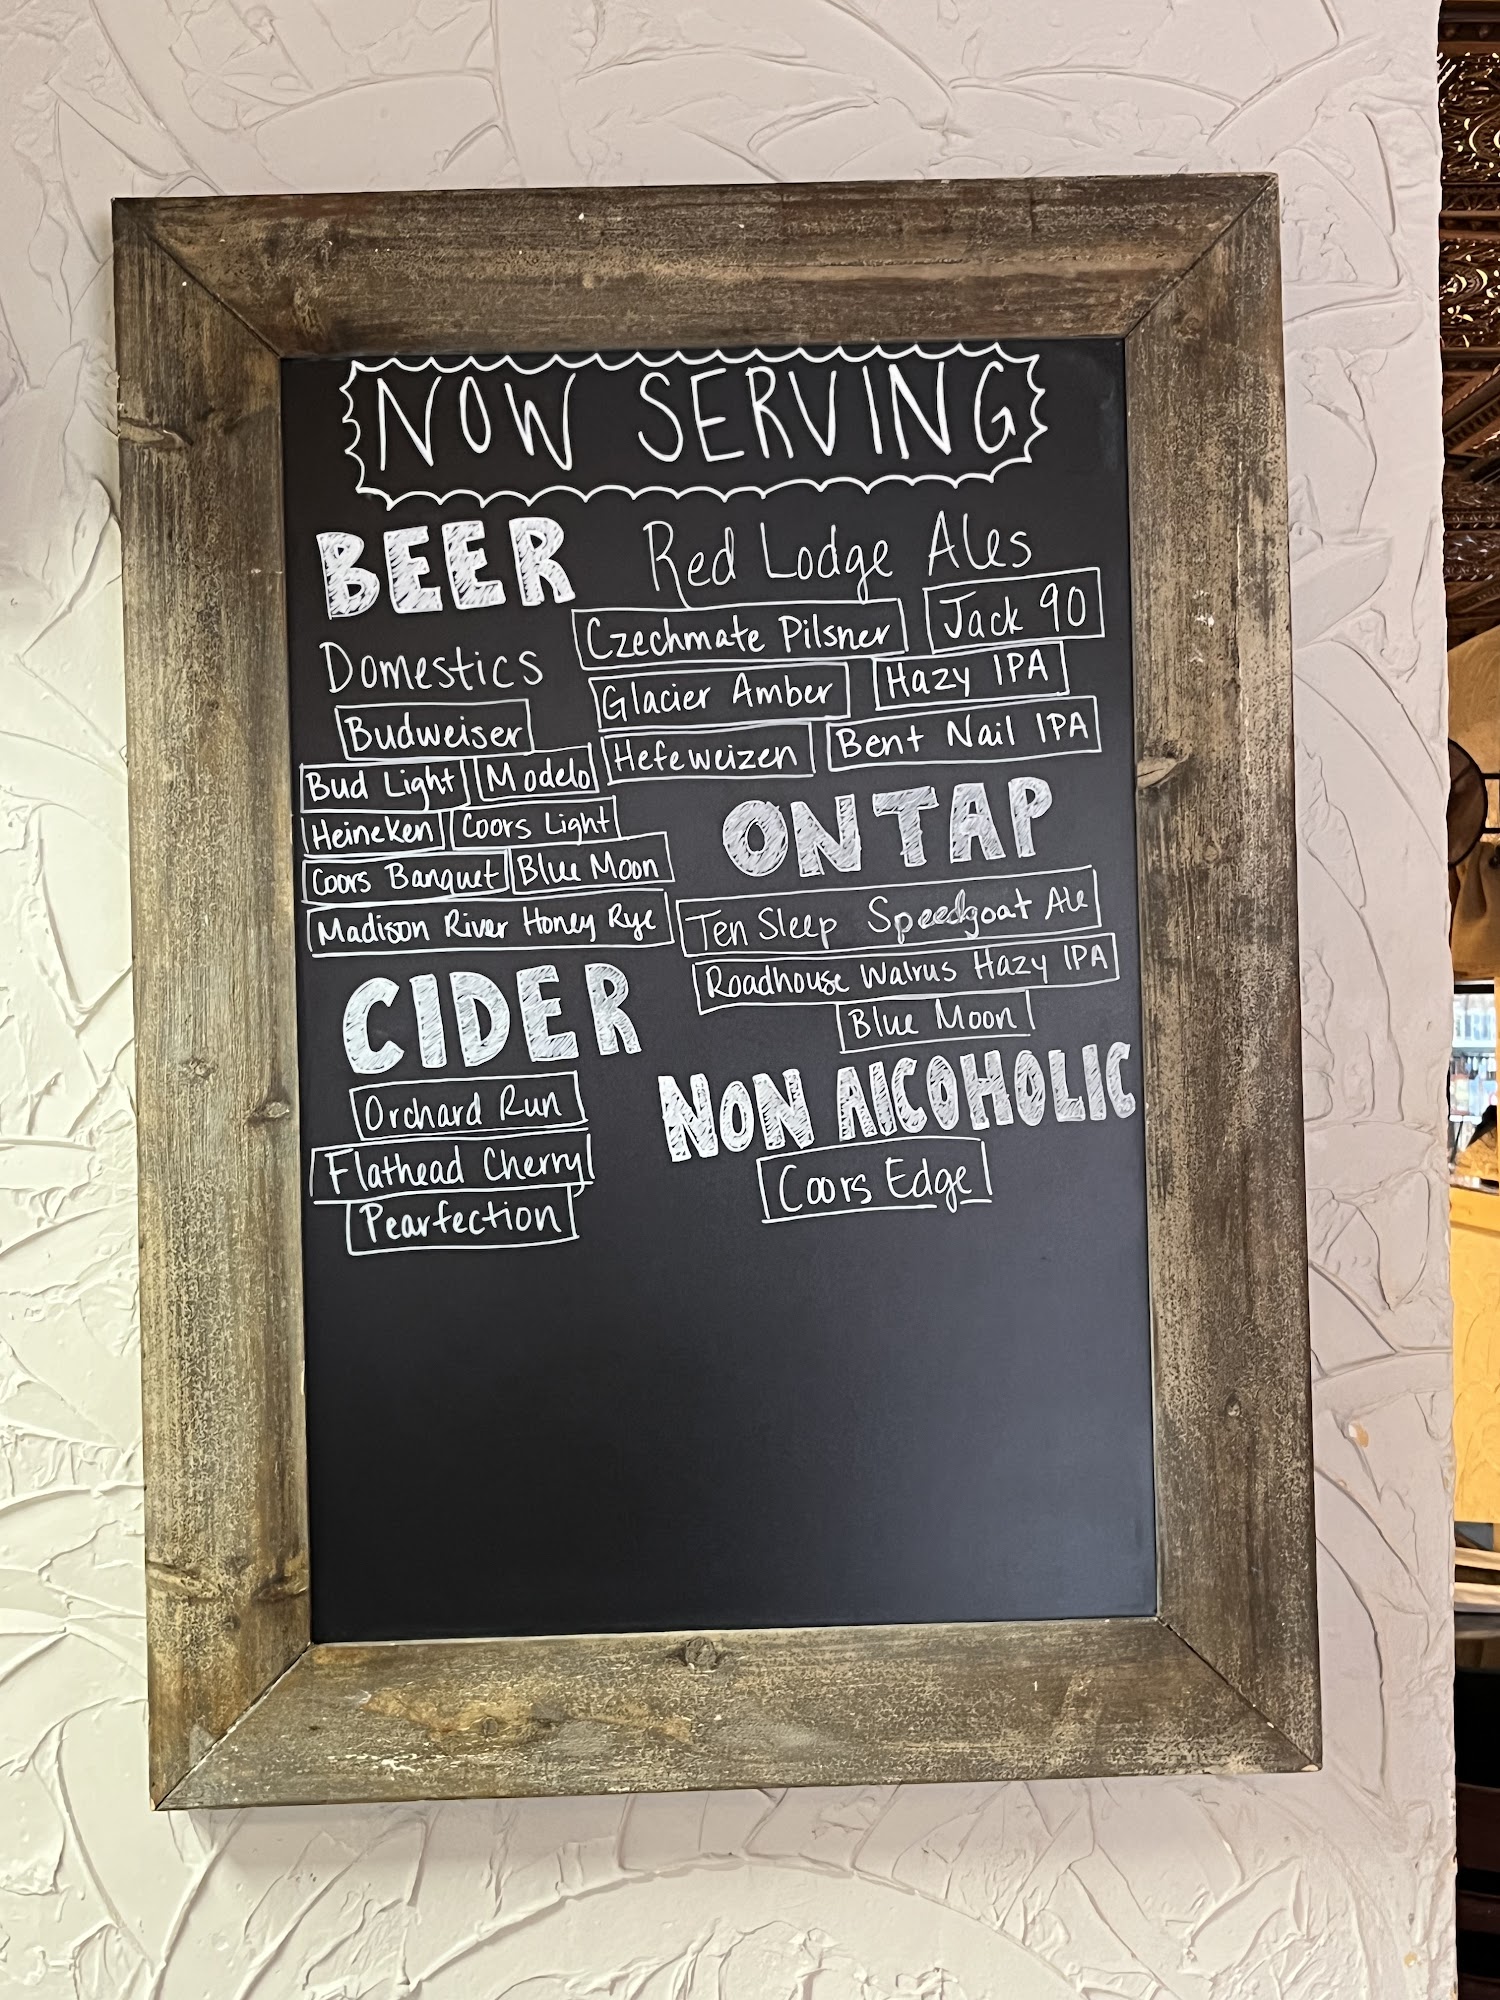 NOW SERVING
BEER
Domestics
Budweiser
Bud Light Modelo
Heineken Coors Light
Coors Banquet Blue Moon
Madison River Honey Rye
CIDER
Orchard Run
Flathead Cherry
Pearfection
Red Lodge Ales
Czechmate Pilsner Jack 90
Glacier Amber Hazy IPA
Hefeweizen Bent Nail IPA
ON TAP
Ten Sleep Speedgoat Ale
Roadhouse Walrus Hazy IPA
Blue Moon
NON AlCOHOLIC
Coors Edge